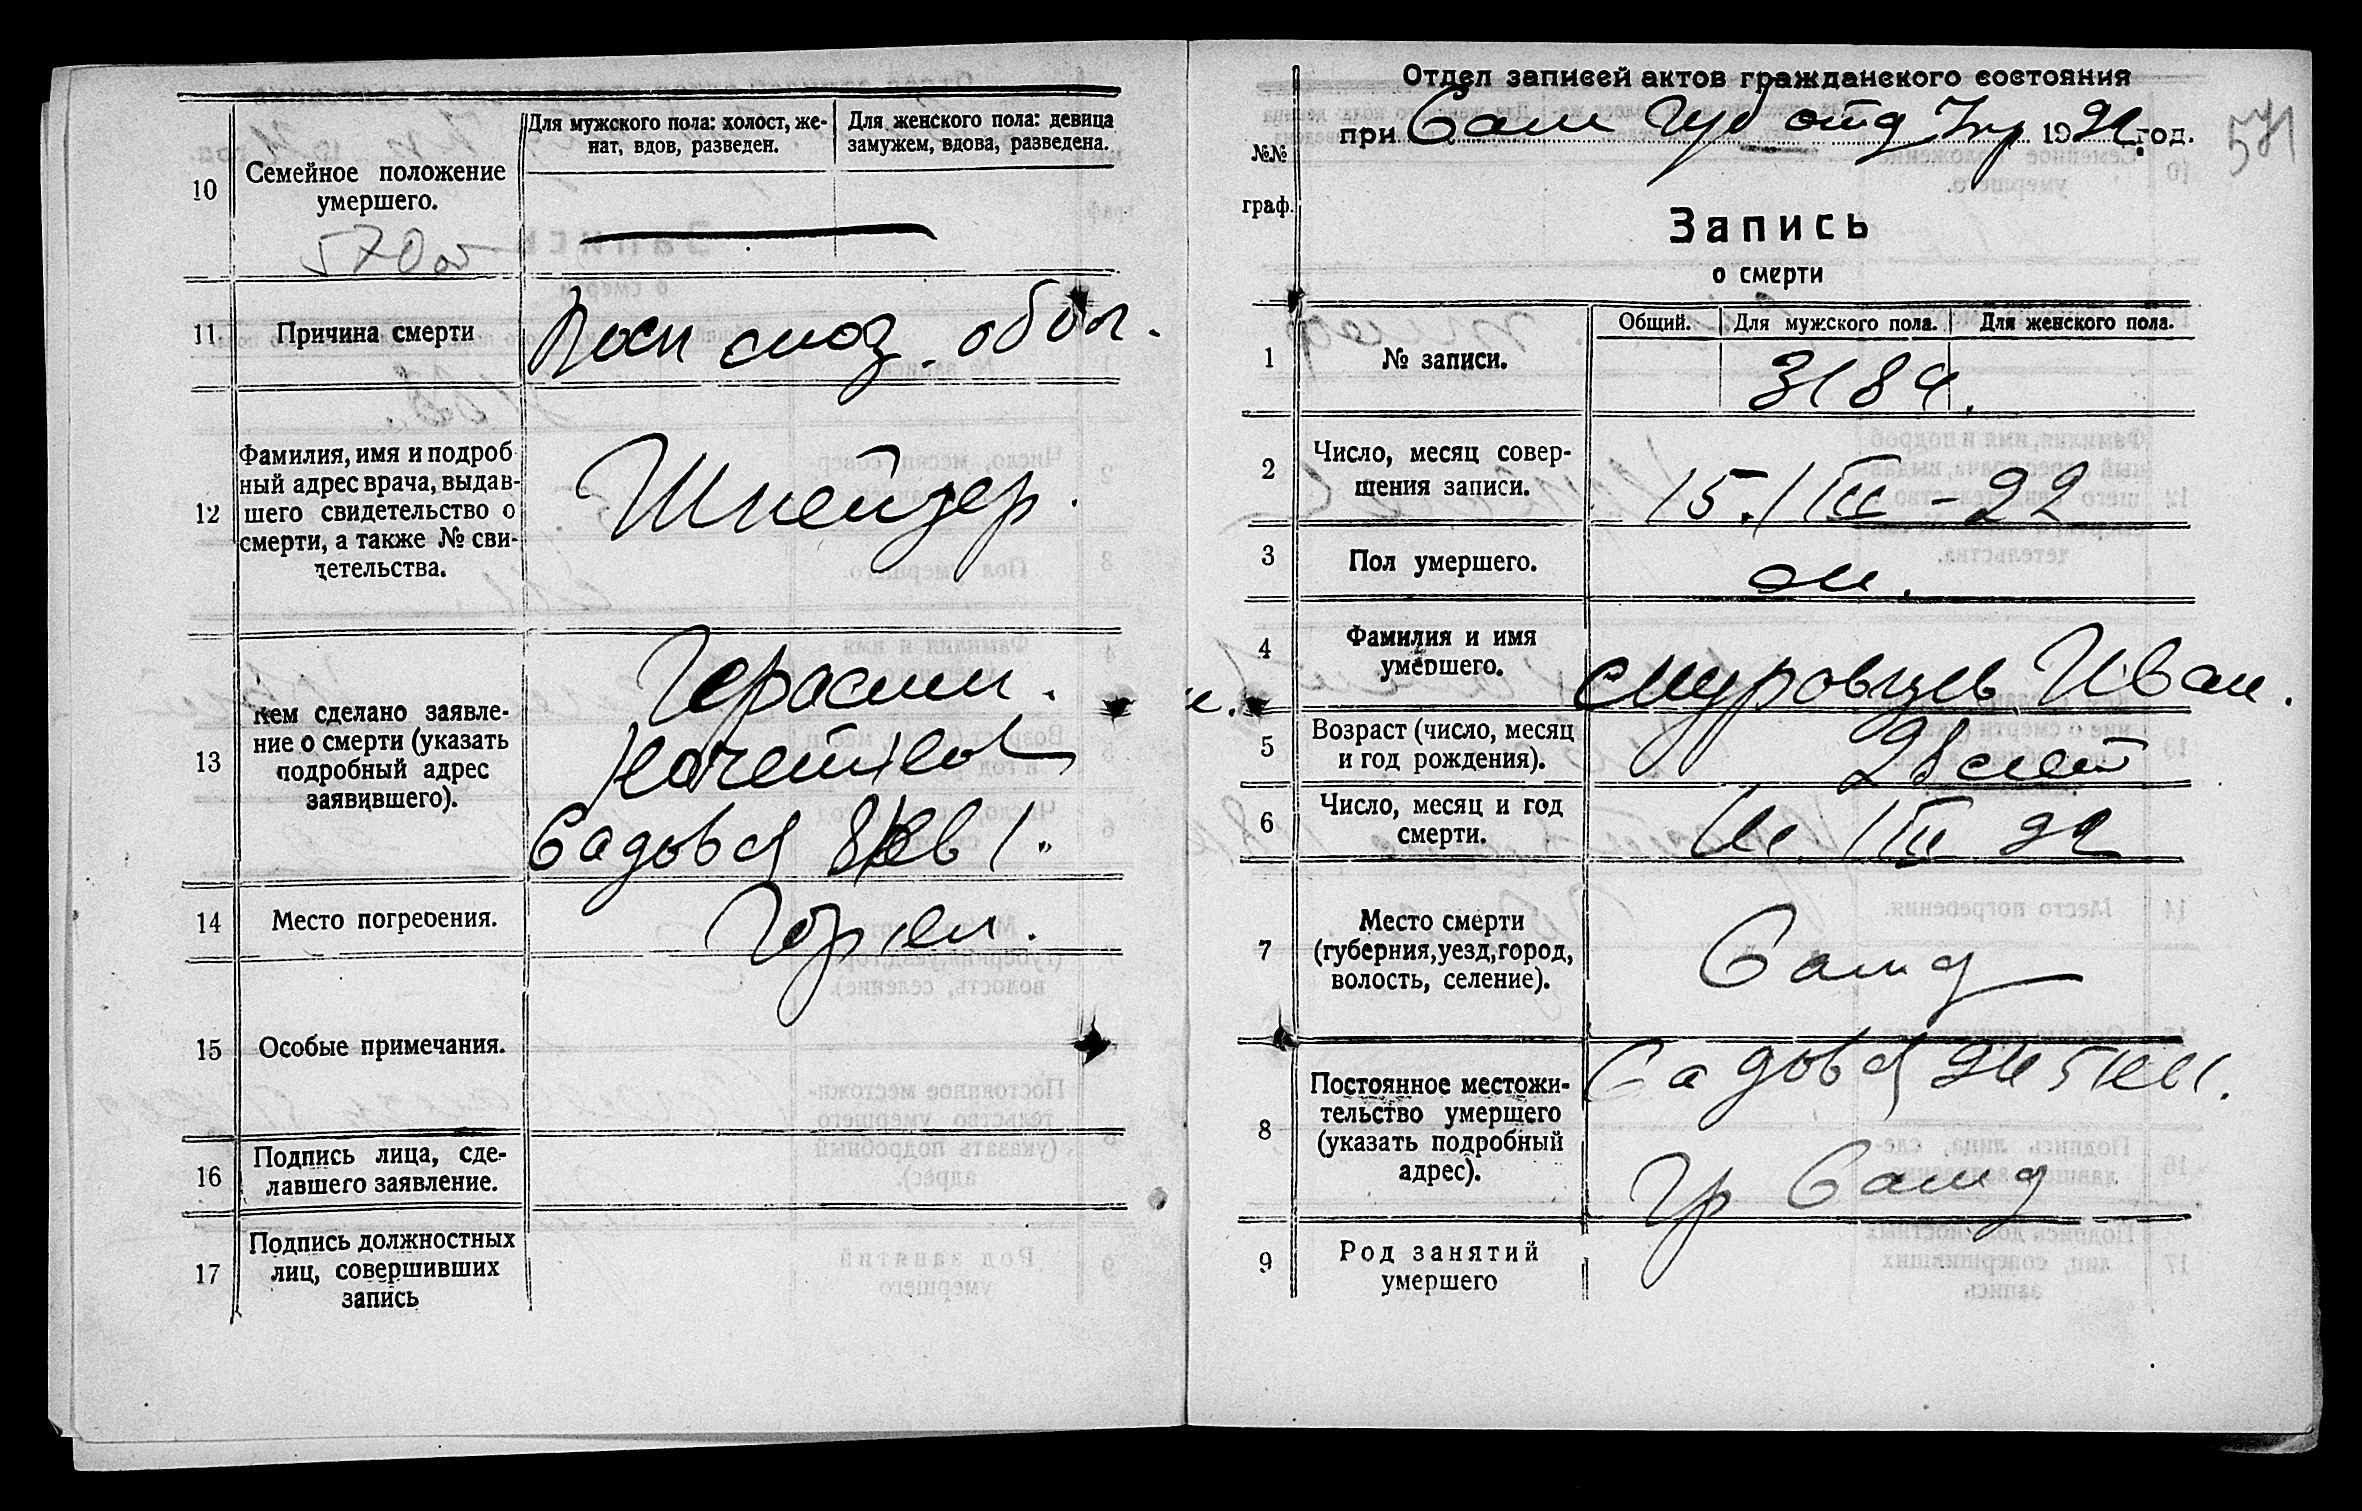 10
Семейное положение
умершего.
570об
Для мужского пола: холост, же-
нат, вдов, разведен.
Для женского пола: девица
замужем, вдова, разведена.
11
Причина смерти
Восп мозг. обол.
12
Фамилия, имя и подроб
ный адрес врача, выдав-
шего свидетельство о
смерти, а также № сви-
детельства.
Шнейдер.
13
Кем сделано заявле-
ние о смерти (указать
подробный адрес
заявившего).
Герасим.
Садовая кв 1.
14
Место погребения.
15
Особые примечания.
16
Подпись лица, сде-
лавшего заявление.
17
Подпись должностных
лиц, совершивших
запись
Отдел записей актов гражданского состояния
при Сам Губ отд Упр 192 год.
571
№№
граф.
Запись
о смерти
1
№ записи.
Общий.
Для мужского пола.
Для женского пола.
3184.
2
Число, месяц совер-
шения записи.
15. III - 22
3
Пол умершего.
м.
4
Фамилия и имя
умершего.
Муровцев Иван.
5
Возраст (число, месяц
и год рождения).
лет
6
Число, месяц и год
смерти.
III 22
7
Место смерти
(губерния, уезд, город,
волость, селение).
Самд
8
Постоянное местожи-
тельство умершего
(указать подробный
адрес).
Садовая
гр Самд
9
Род занятий
умершего